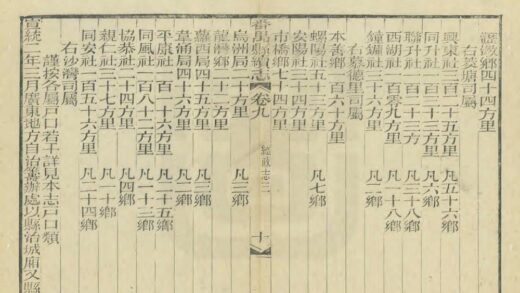 鄉四十四方里
右茭塘司屬
興東社三百二十五方里　凡五十六鄉
同升社一百三十方里　凡六鄉
聯升社一百二十三方　凡三十八鄉
西湖社一百零九方里　凡一十八鄉
鍾鏞社三十方里　凡二鄉
右慕德里司屬
本善鄉一百六十方里
螺陽社五十三方里　凡七鄉
市橋鄉七十四方里
番禺縣續志　卷九　經政志三　十
烏洲局二十方里　凡三鄉
龍灣鄉二十二方里
西局四十五方里　凡三鄉
韋涌局四十六方里　凡二鄉
平康社一百一十六方里　凡二十五鄉
同風社一百八十二方里　凡一十三鄉
協恭社二十四方里　凡四鄉
親仁社三十七方里　凡一十鄉
同安社一百五十六方里　凡二十四鄉
右沙灣司屬
謹按各屬戶口若干詳見本志戶口類
宣統二年三月廣東地方自治籌辦處以縣治城廂又縣